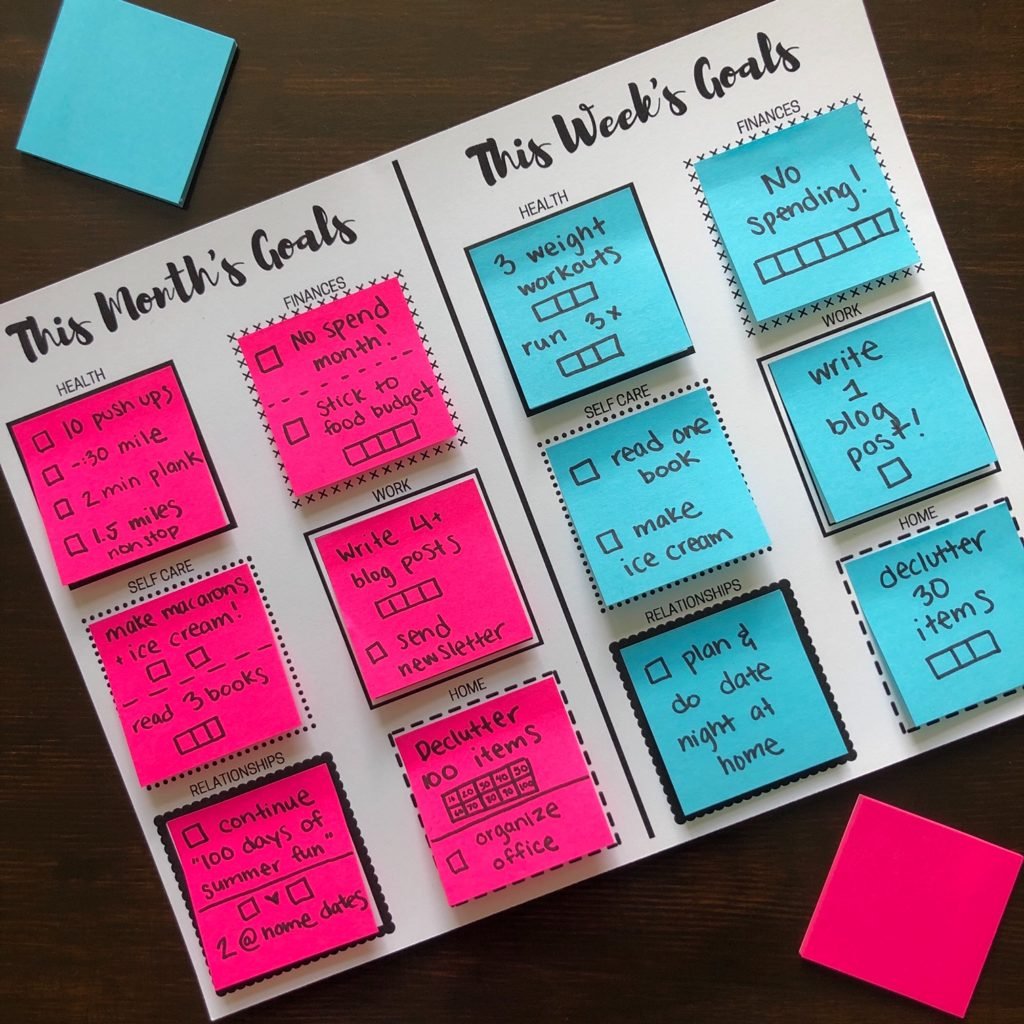 This Month's Goals
HEALTH
10 push ups
-:30 mile
2 min plank
1.5 miles
nonstop
FINANCES
No spend
month!
stick to
food budget
SELF CARE
make macarons
+ ice cream!
read 3 books
WORK
Write 4+
blog posts
send
newsletter
RELATIONSHIPS
continue
"100 days of
summer fun"
2 @ home dates
HOME
Declutter
100 items
10 20 30 40 50
60 70 80 90 100
organize
office
This Week's Goals
HEALTH
3 weight
workouts
run 3x
FINANCES
No
spending!
SELF CARE
read one
book
make
ice cream
WORK
write
1
blog
post!
RELATIONSHIPS
plan &
do date
night at
home
HOME
declutter
30
items